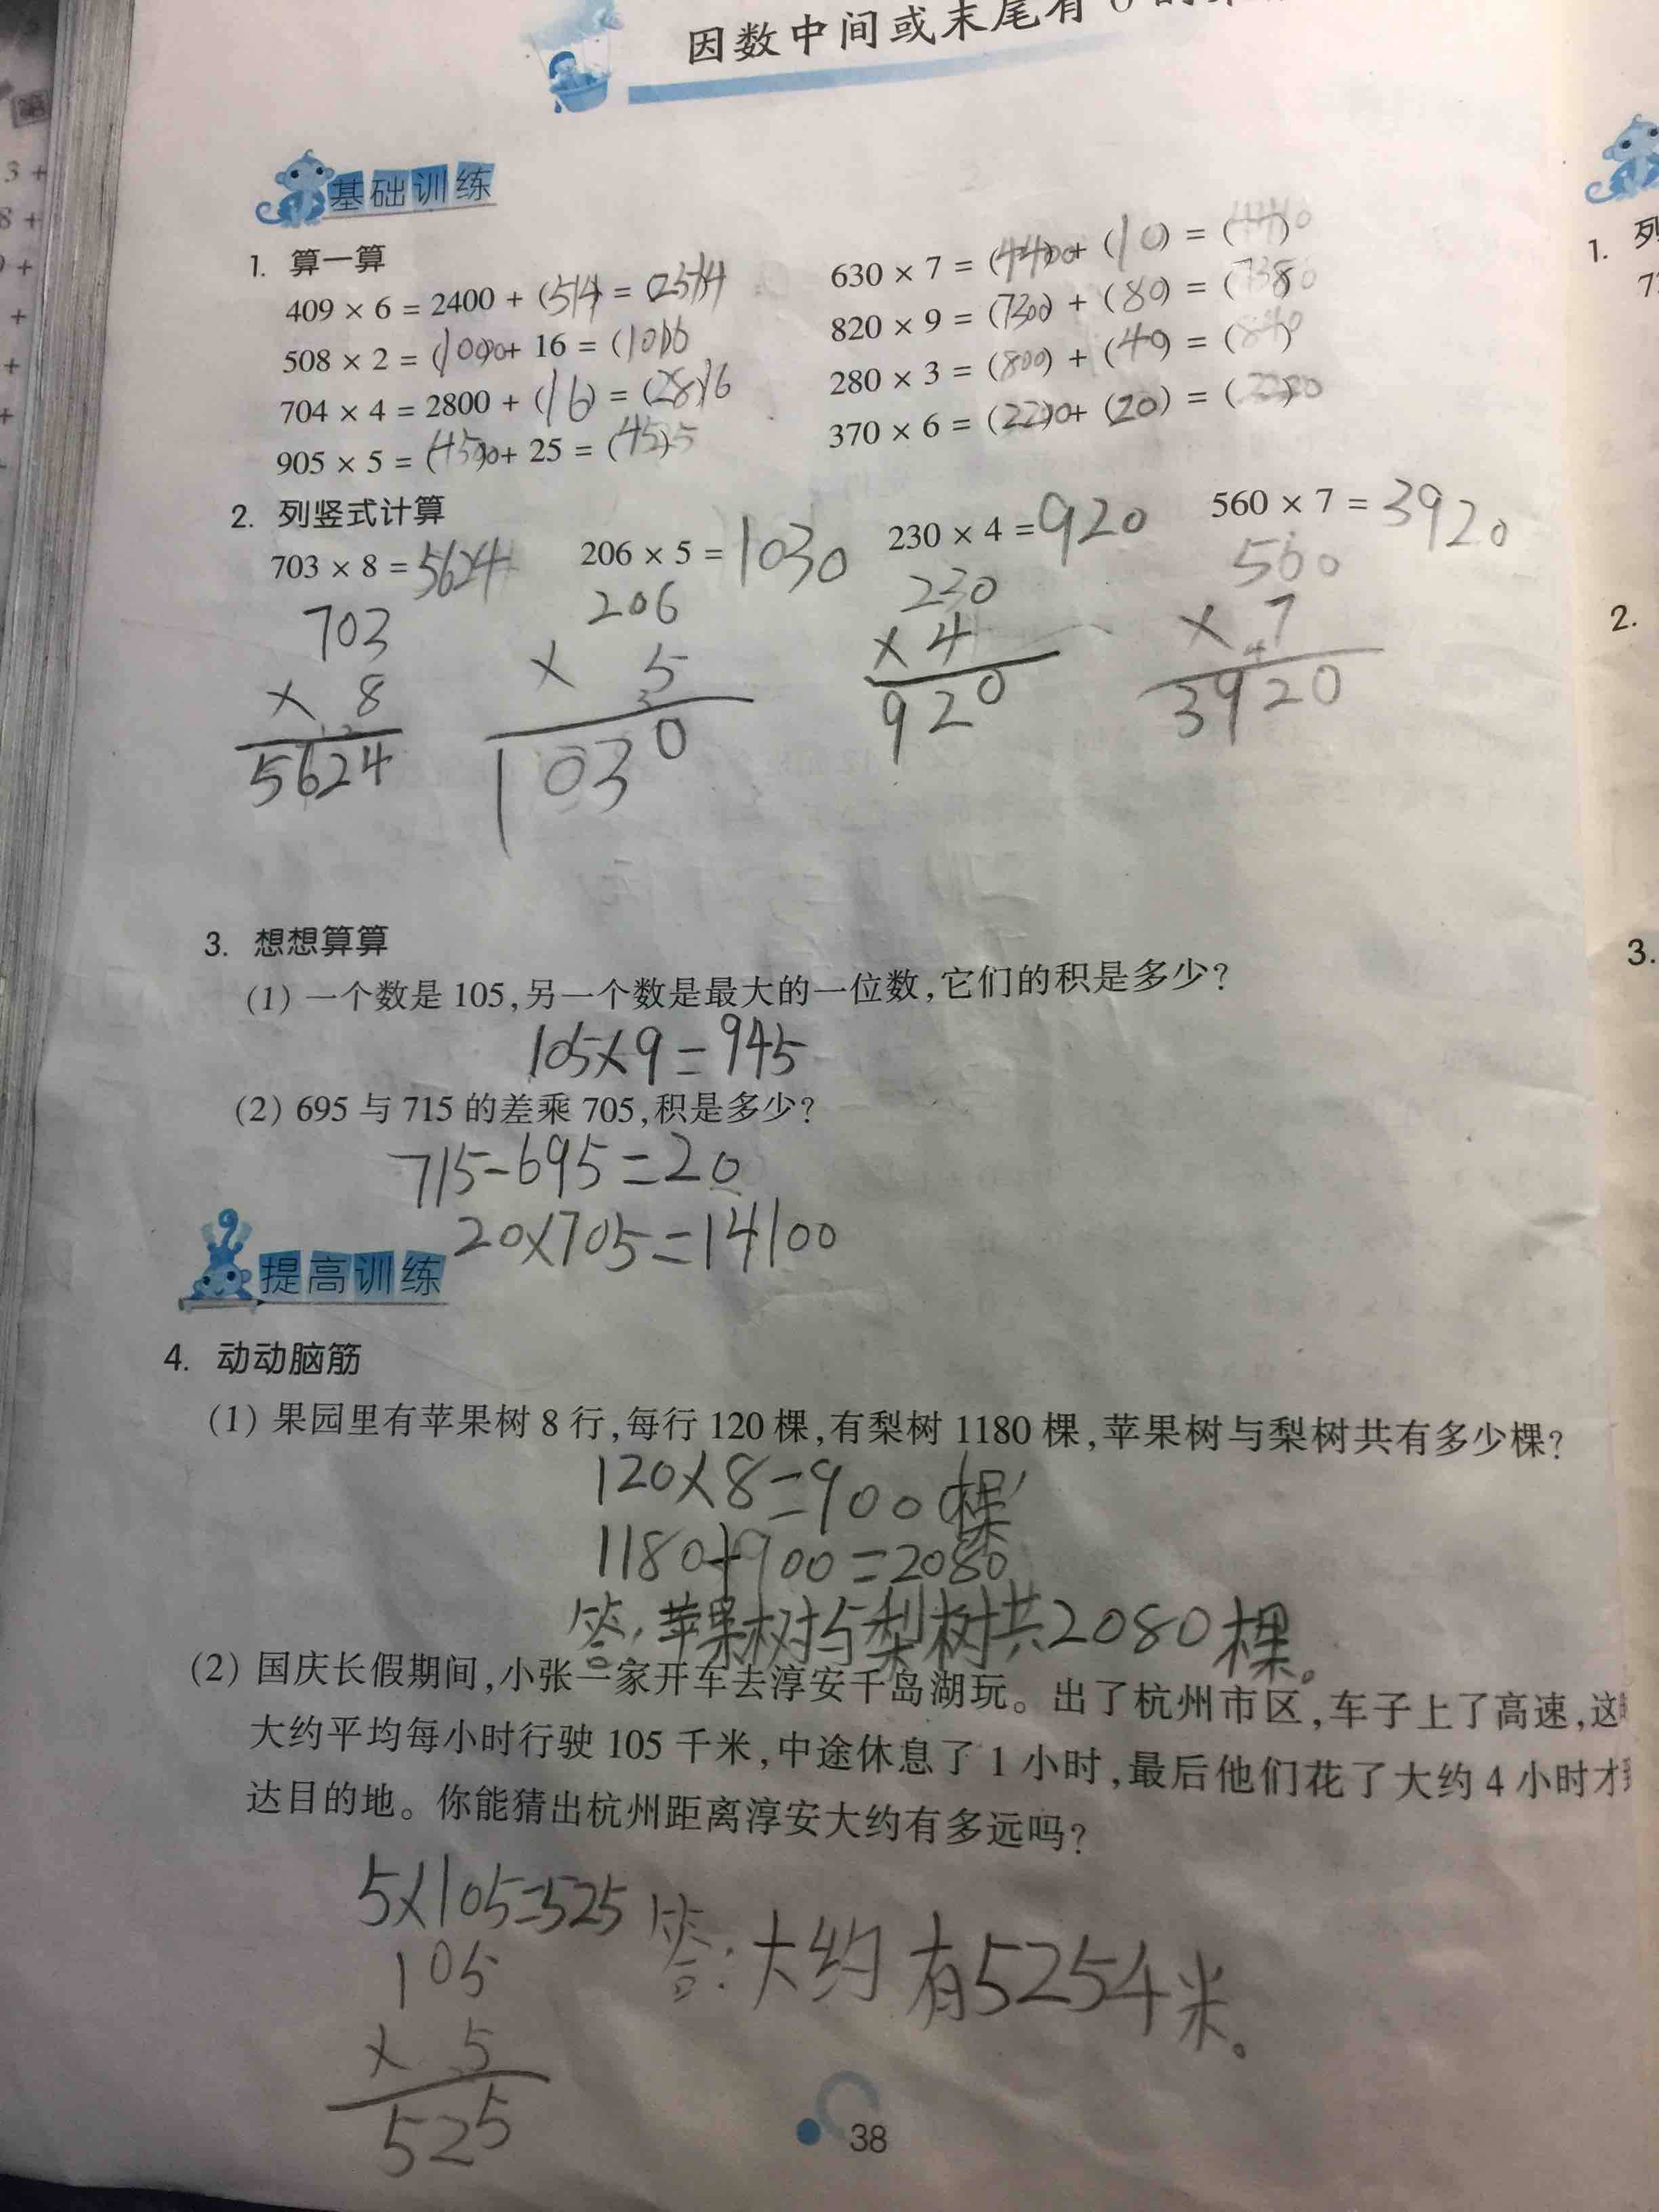 因数中间或末尾有 0 的
基础训练
1. 算一算
409 × 6 = 2400 + (514) = (2514)
508 × 2 = (1000) + 16 = (1016)
704 × 4 = 2800 + (16) = (2816)
905 × 5 = (4500) + 25 = (4525)
630 × 7 = (4400) + (10) = (4410)
820 × 9 = (7300) + (80) = (7380)
280 × 3 = (800) + (40) = (840)
370 × 6 = (2200) + (20) = (2220)
2. 列竖式计算
703 × 8 = 5624
206 × 5 = 1030
230 × 4 = 920
560 × 7 = 3920
703
× 8
5624
206
× 5
1030
230
× 4
920
560
× 7
3920
3. 想想算算
(1) 一个数是 105,另一个数是最大的一位数,它们的积是多少?
105×9=945
(2) 695 与 715 的差乘 705,积是多少?
715-695=20
20×705=14100
提高训练
4. 动动脑筋
(1) 果园里有苹果树 8 行,每行 120 棵,有梨树 1180 棵,苹果树与梨树共有多少棵?
120×8=900(棵)
1180+900=2080
答:苹果树与梨树共2080棵。
(2) 国庆长假期间,小张一家开车去淳安千岛湖玩。出了杭州市区,车子上了高速,这
大约平均每小时行驶 105 千米,中途休息了 1 小时,最后他们花了大约 4 小时才
达目的地。你能猜出杭州距离淳安大约有多远吗?
5×105=525
答:大约有525千米。
105
× 5
525
38
1. 列
2.
3.